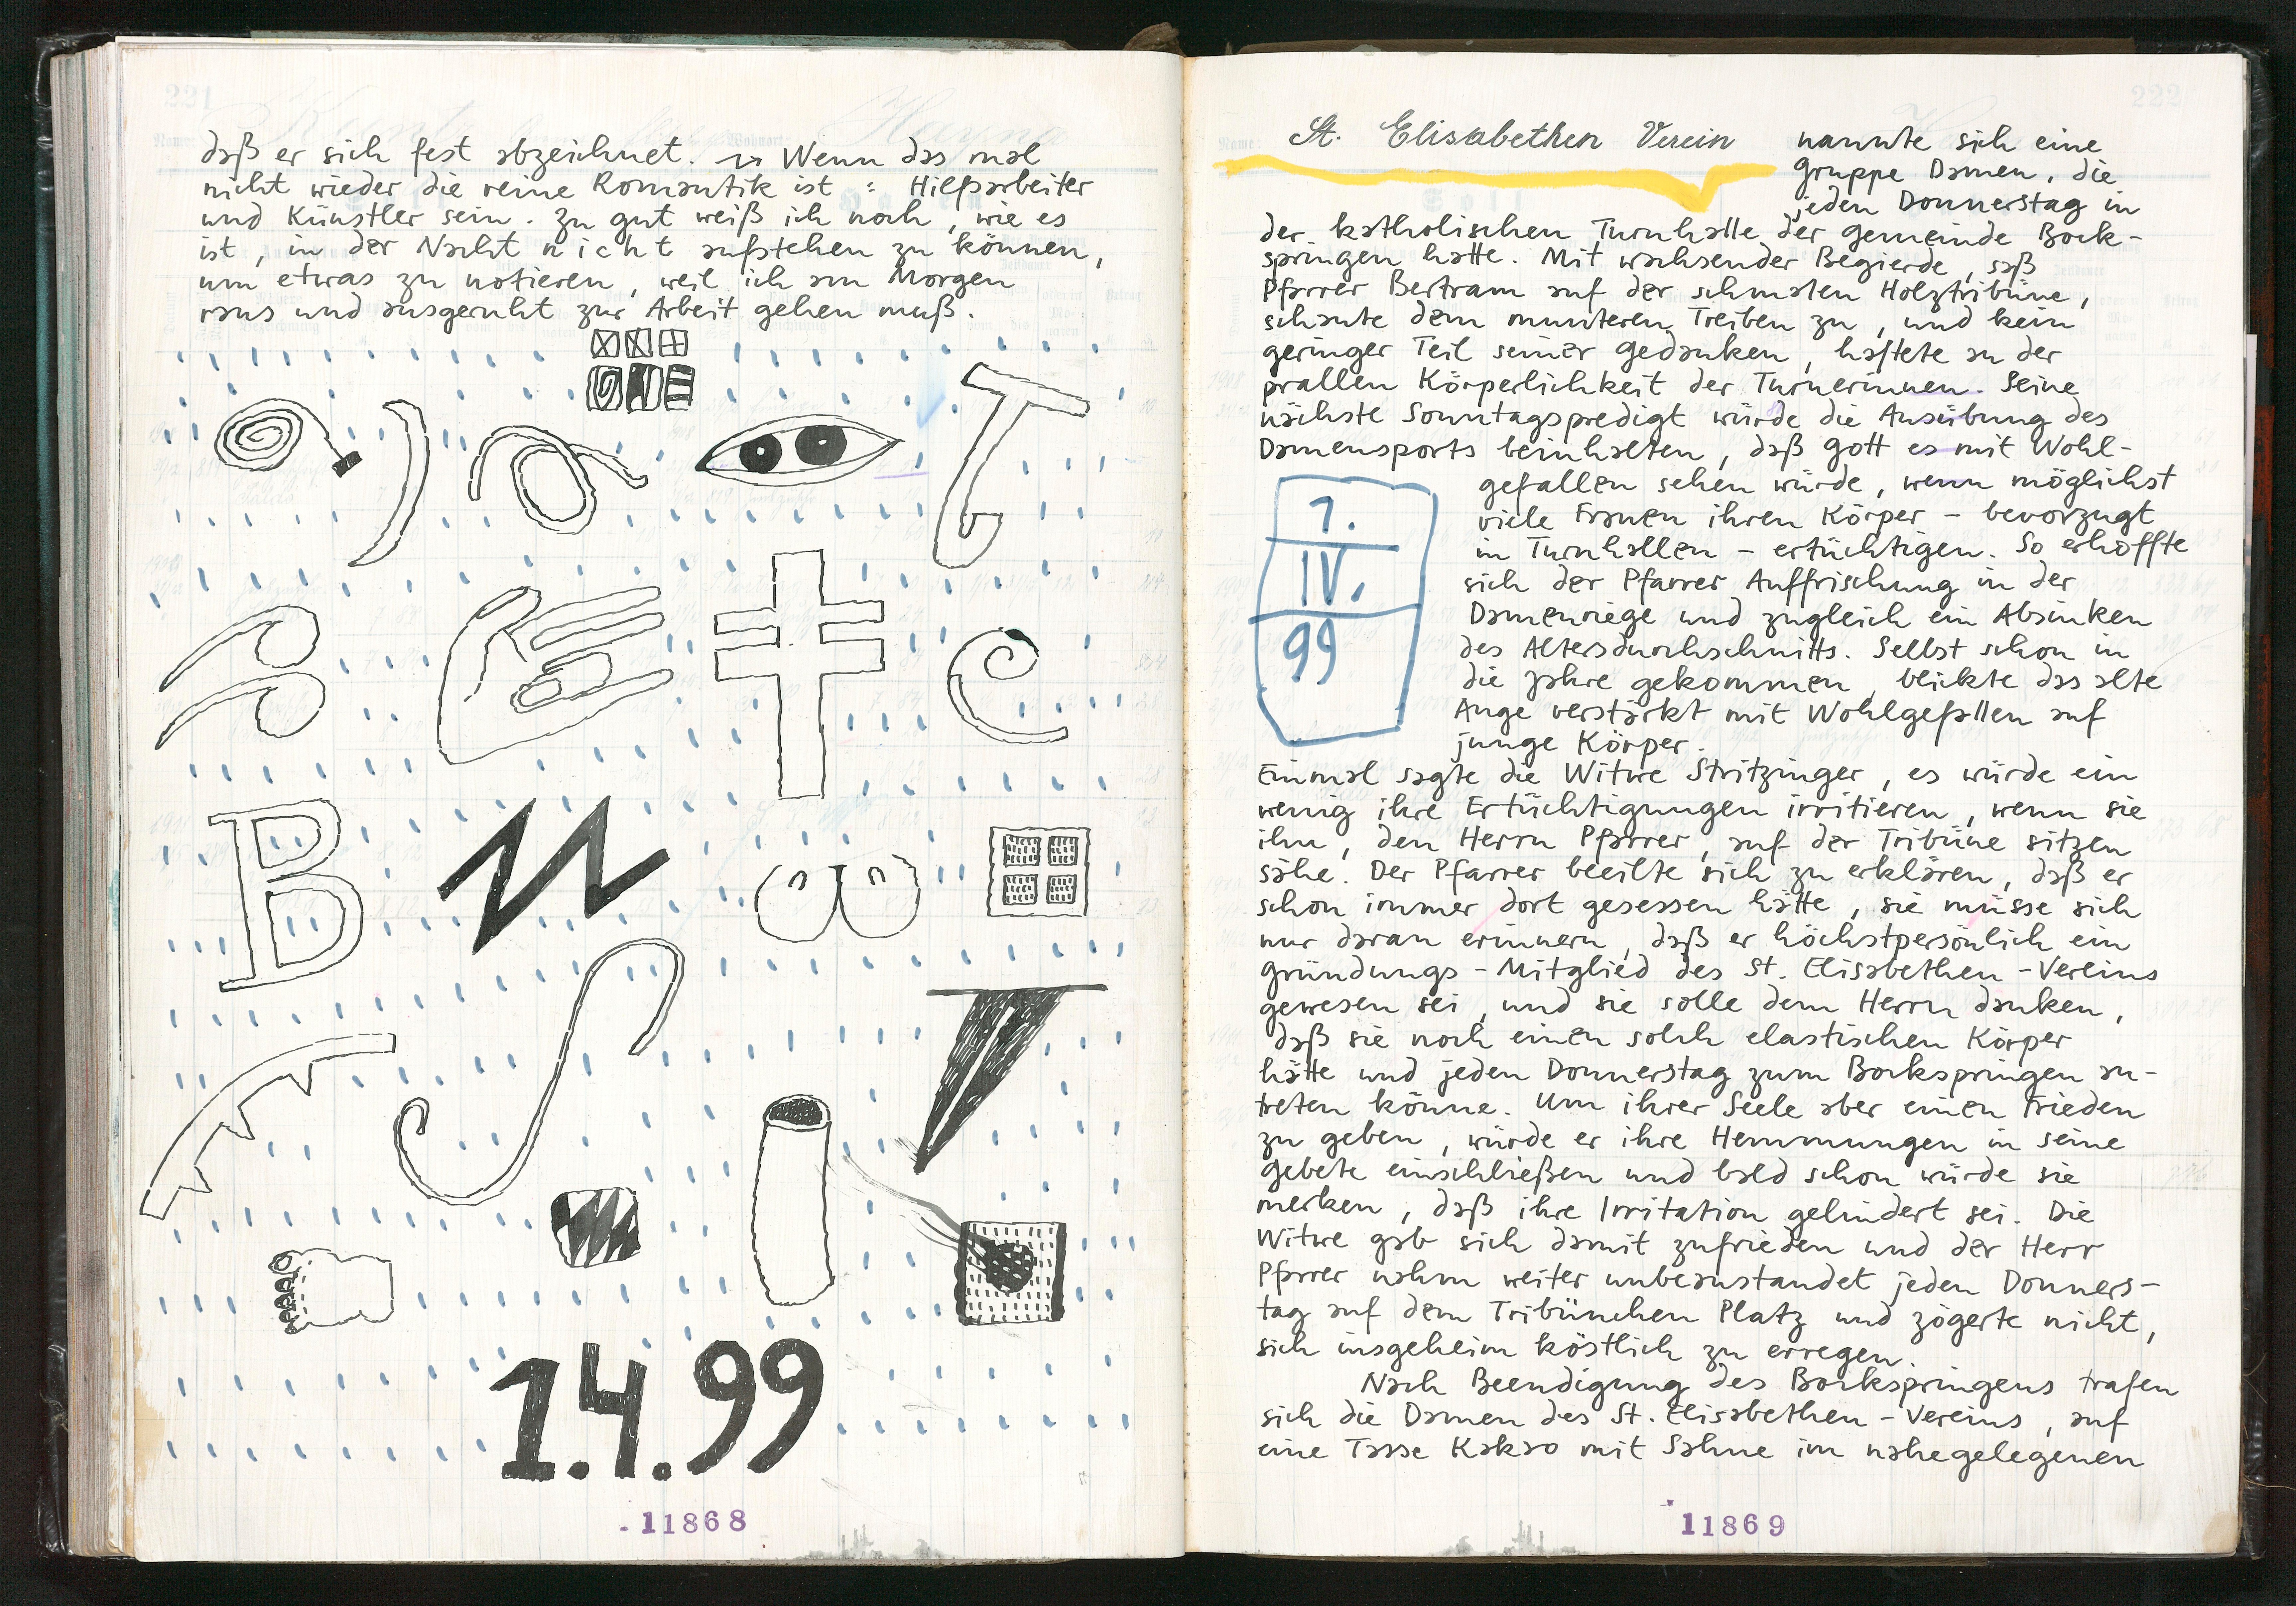 daß er sich fest abzeichnet. → Wenn das mal
nicht wieder die reine Romantik ist : Hilfsarbeiter
und Künstler sein. Zu gut weiß ich noch, wie es
ist, in der Nacht nicht aufstehen zu können,
um etwas zu notieren, weil ich am Morgen
raus und ausgeruht zur Arbeit gehen muß.
B
1.4.99
11868
222
St. Elisabethen Verein nannte sich eine
Gruppe Damen, die
jeden Donnerstag in
der katholischen Turnhalle der Gemeinde Bock-
springen hatte. Mit wachsender Begierde, saß
Pfarrer Bertram auf der schmalen Holztribüne,
schaute dem munteren Treiben zu, und kein
geringer Teil seiner Gedanken, haftete an der
prallen Körperlichkeit der Turnerinnen. Seine
nächste Sonntagspredigt würde die Ausübung des
Damensports beinhalten, daß Gott es mit Wohl-
gefallen sehen würde, wenn möglichst
viele Frauen ihren Körper – bevorzugt
in Turnhallen – ertüchtigen. So erhoffte
sich der Pfarrer Auffrischung in der
Damenriege und zugleich ein Absinken
des Altersdurchschnitts. Selbst schon in
die Jahre gekommen, blickte das alte
Auge verstärkt mit Wohlgefallen auf
junge Körper.
1.
IV.
99
Einmal sagte die Witwe Stritzinger, es würde ein
wenig ihre Ertüchtigungen irritieren, wenn sie
ihn, den Herrn Pfarrer, auf der Tribüne sitzen
sähe. Der Pfarrer beeilte sich zu erklären, daß er
schon immer dort gesessen hätte, sie müsse sich
nur daran erinnern, daß er höchstpersönlich ein
Gründungs-Mitglied des St. Elisabethen-Vereins
gewesen sei, und sie solle dem Herrn danken,
daß sie noch einen solch elastischen Körper
hätte und jeden Donnerstag zum Bockspringen an-
treten könne. Um ihrer Seele aber einen Frieden
zu geben, würde er ihre Hemmungen in seine
Gebete einschließen und bald schon würde sie
merken, daß ihre Irritation gelindert sei. Die
Witwe gab sich damit zufrieden und der Herr
Pfarrer nahm weiter unbeanstandet jeden Donners-
tag auf dem Tribünchen Platz und zögerte nicht,
sich insgeheim köstlich zu erregen.
Nach Beendigung des Bockspringens trafen
sich die Damen des St. Elisabethen-Vereins, auf
eine Tasse Kakao mit Sahne im nahegelegenen
11869